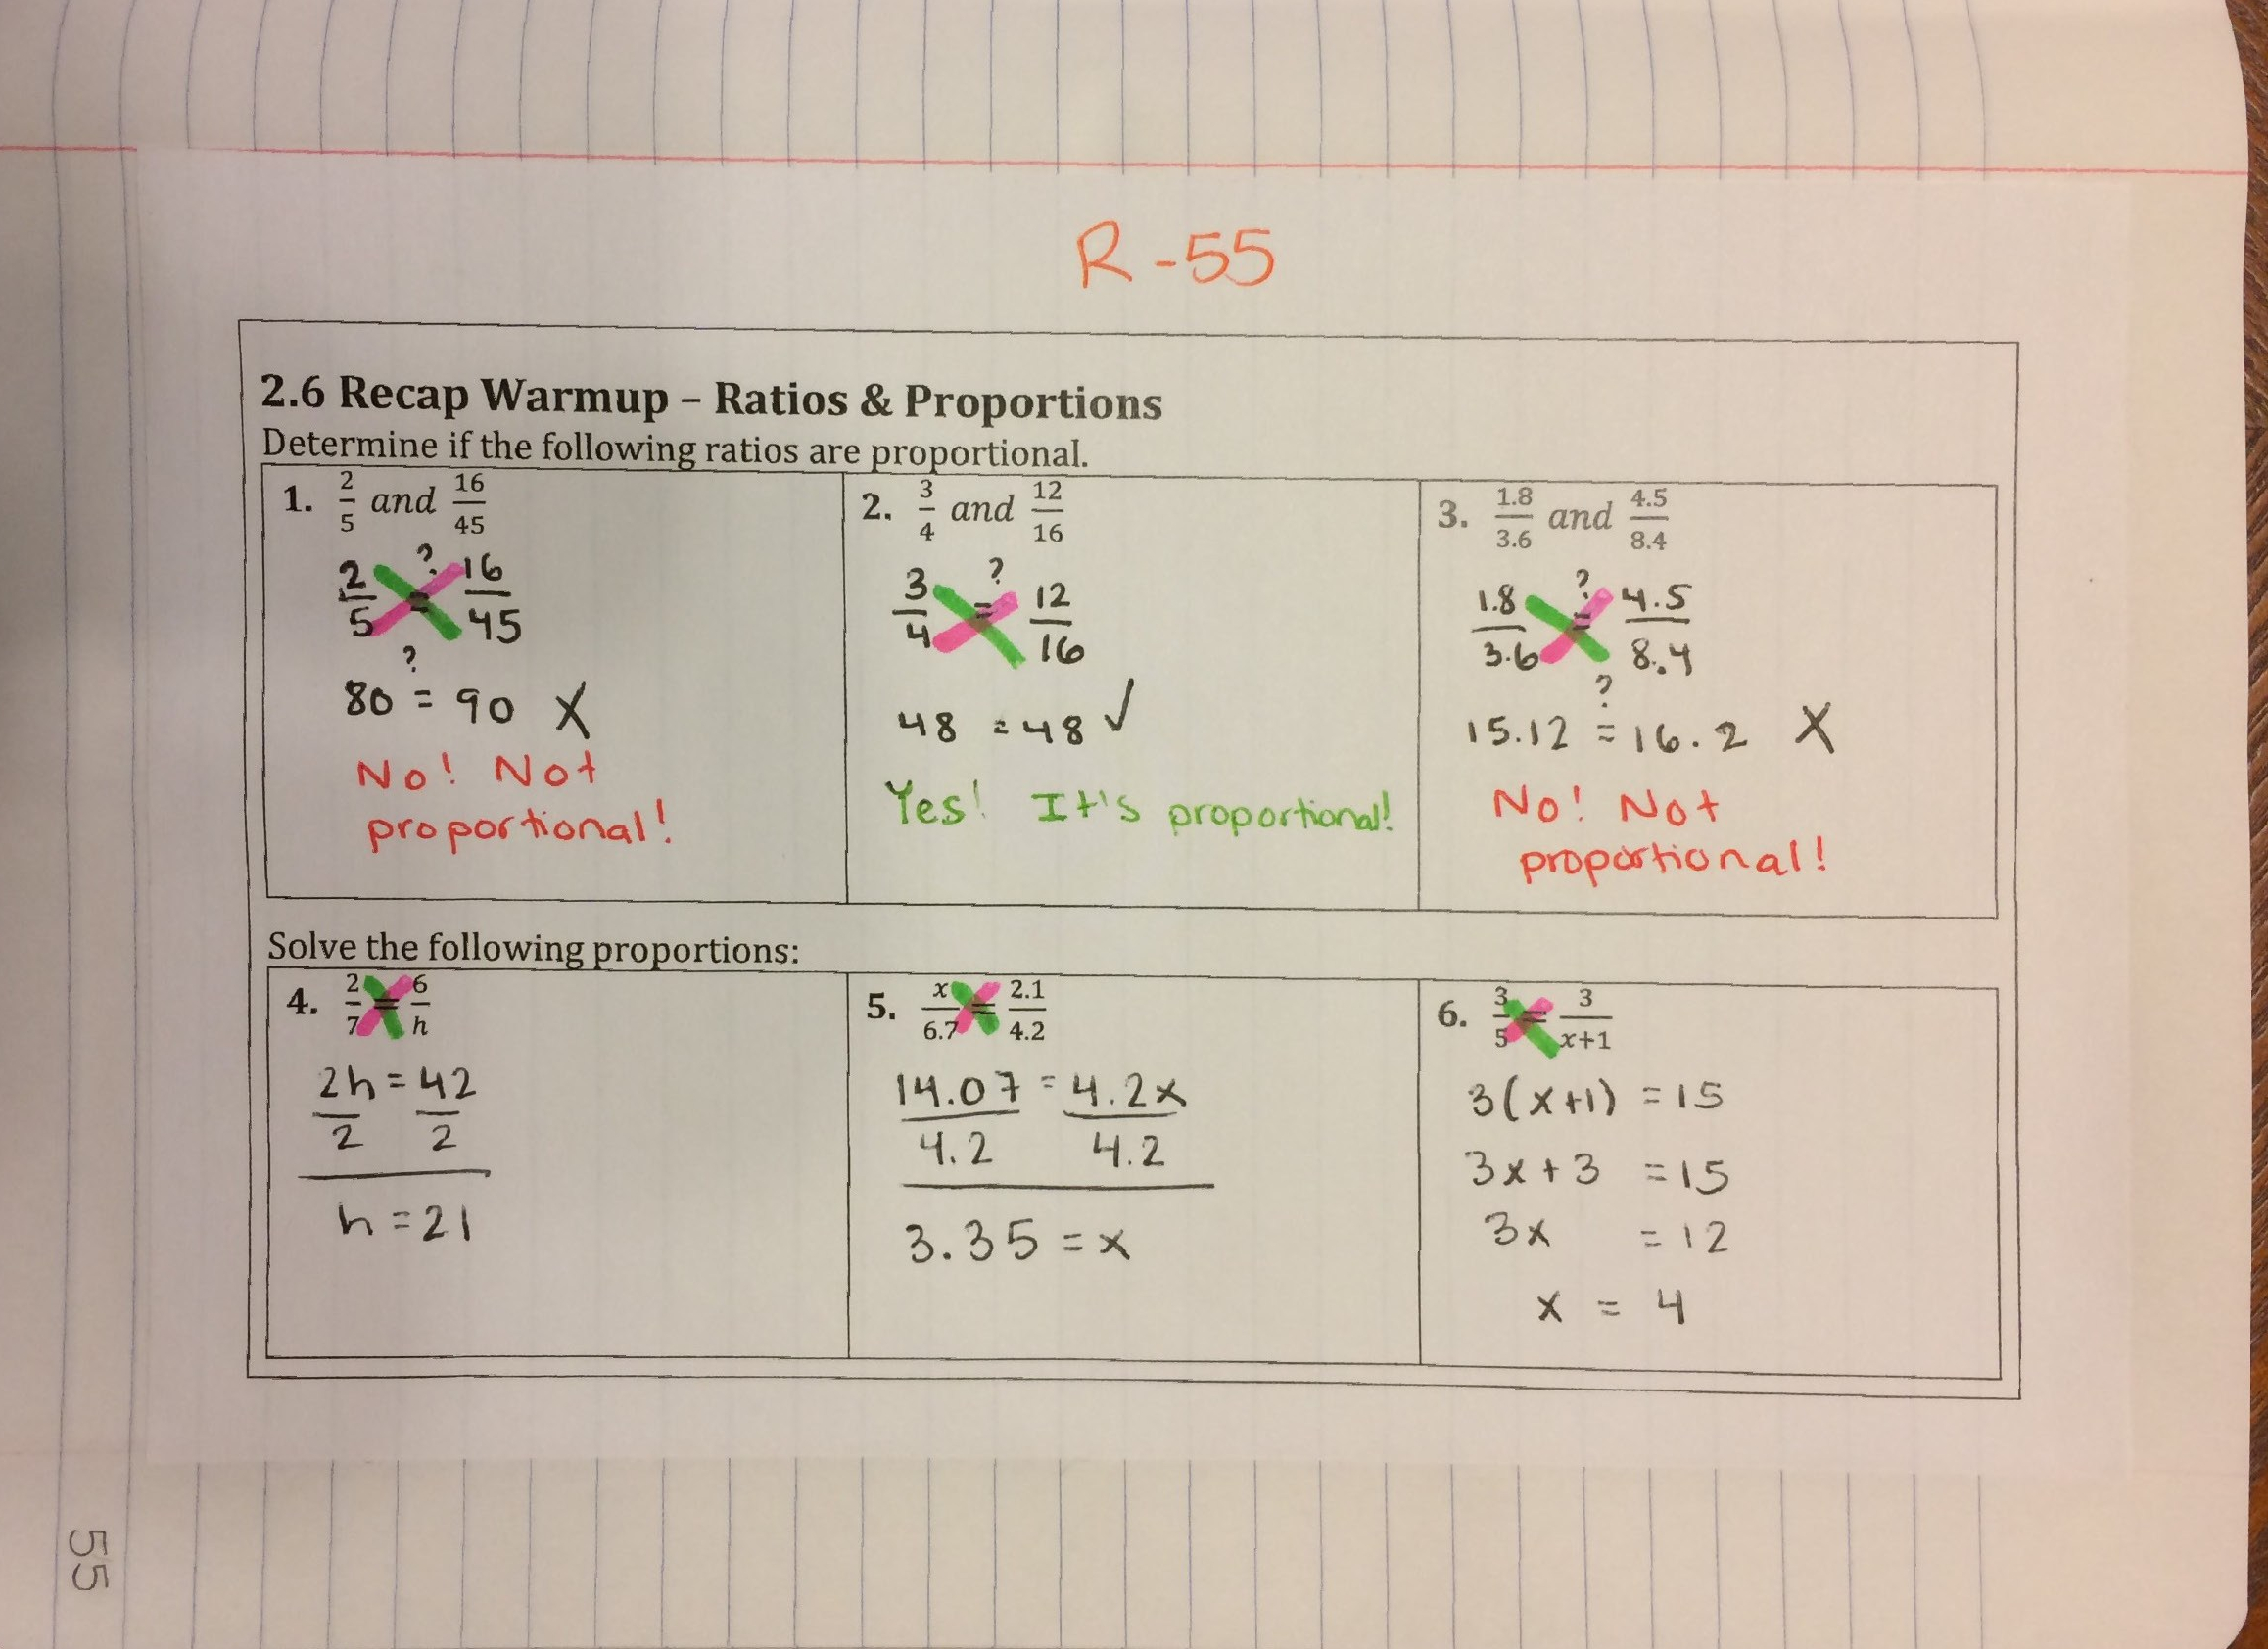 R-55
2.6 Recap Warmup – Ratios & Proportions
Determine if the following ratios are proportional.
1. 2/5 and 16/45
2/5 ?= 16/45
80 ?= 90 X
No! Not
proportional!
2. 3/4 and 12/16
3/4 ?= 12/16
48 = 48 ✓
Yes! It's proportional!
3. 1.8/3.6 and 4.5/8.4
1.8/3.6 ?= 4.5/8.4
15.12 ?= 16.2 X
No! Not
proportional!
Solve the following proportions:
4. 2/7 = 6/h
2h = 42
2 2
h = 21
5. x/6.7 = 2.1/4.2
14.07 = 4.2x
4.2 4.2
3.35 = x
6. 3/5 = 3/x+1
3(x+1) = 15
3x+3 = 15
3x = 12
x = 4
55